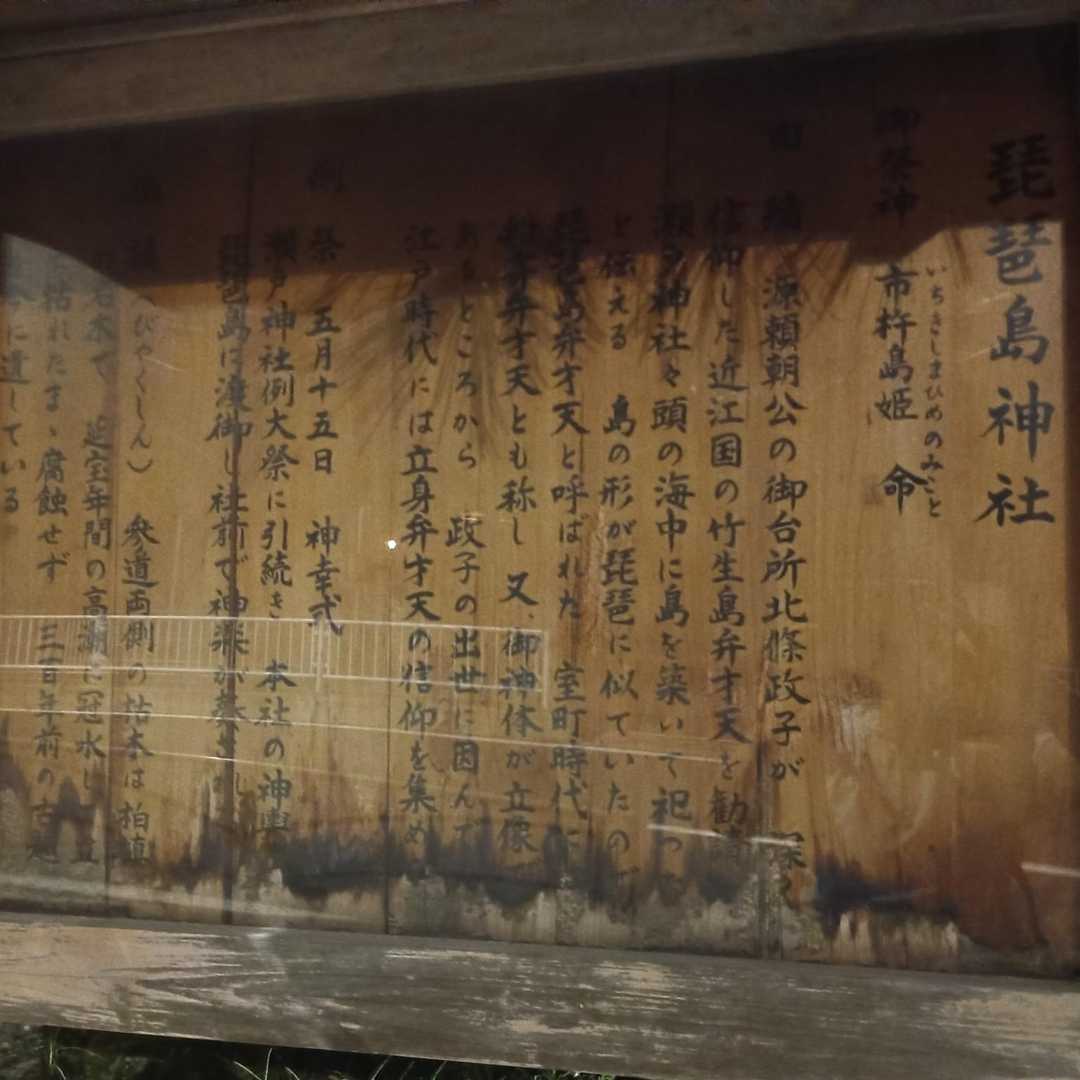 琵琶島神社
御祭神 市杵島姫 命
いちきしまひめのみこと
緒 源頼朝公の御台所北條政子が 深く
信仰した近江国の竹生島弁才天を勧請
瀬戸神社々頭の海中に島を築いて祀った
と伝える 島の形が琵琶に似ていたので
琵琶島弁才天と呼ばれた 室町時代に
弁才天とも称し 又、御神体が立像
あるところから 政子の出世に因んで
江戸時代には立身弁才天の信仰を集め
例 祭 五月十五日 神幸式
瀬戸神社例大祭に引続き 本社の神輿
琵琶島に渡御し社前で神楽が奏
びゃくしん） 参道両側の枯木は柏槇
名木で 延宝年間の高潮に冠水し
枯れたまゝ腐蝕せず 三百年前の古
に遺している